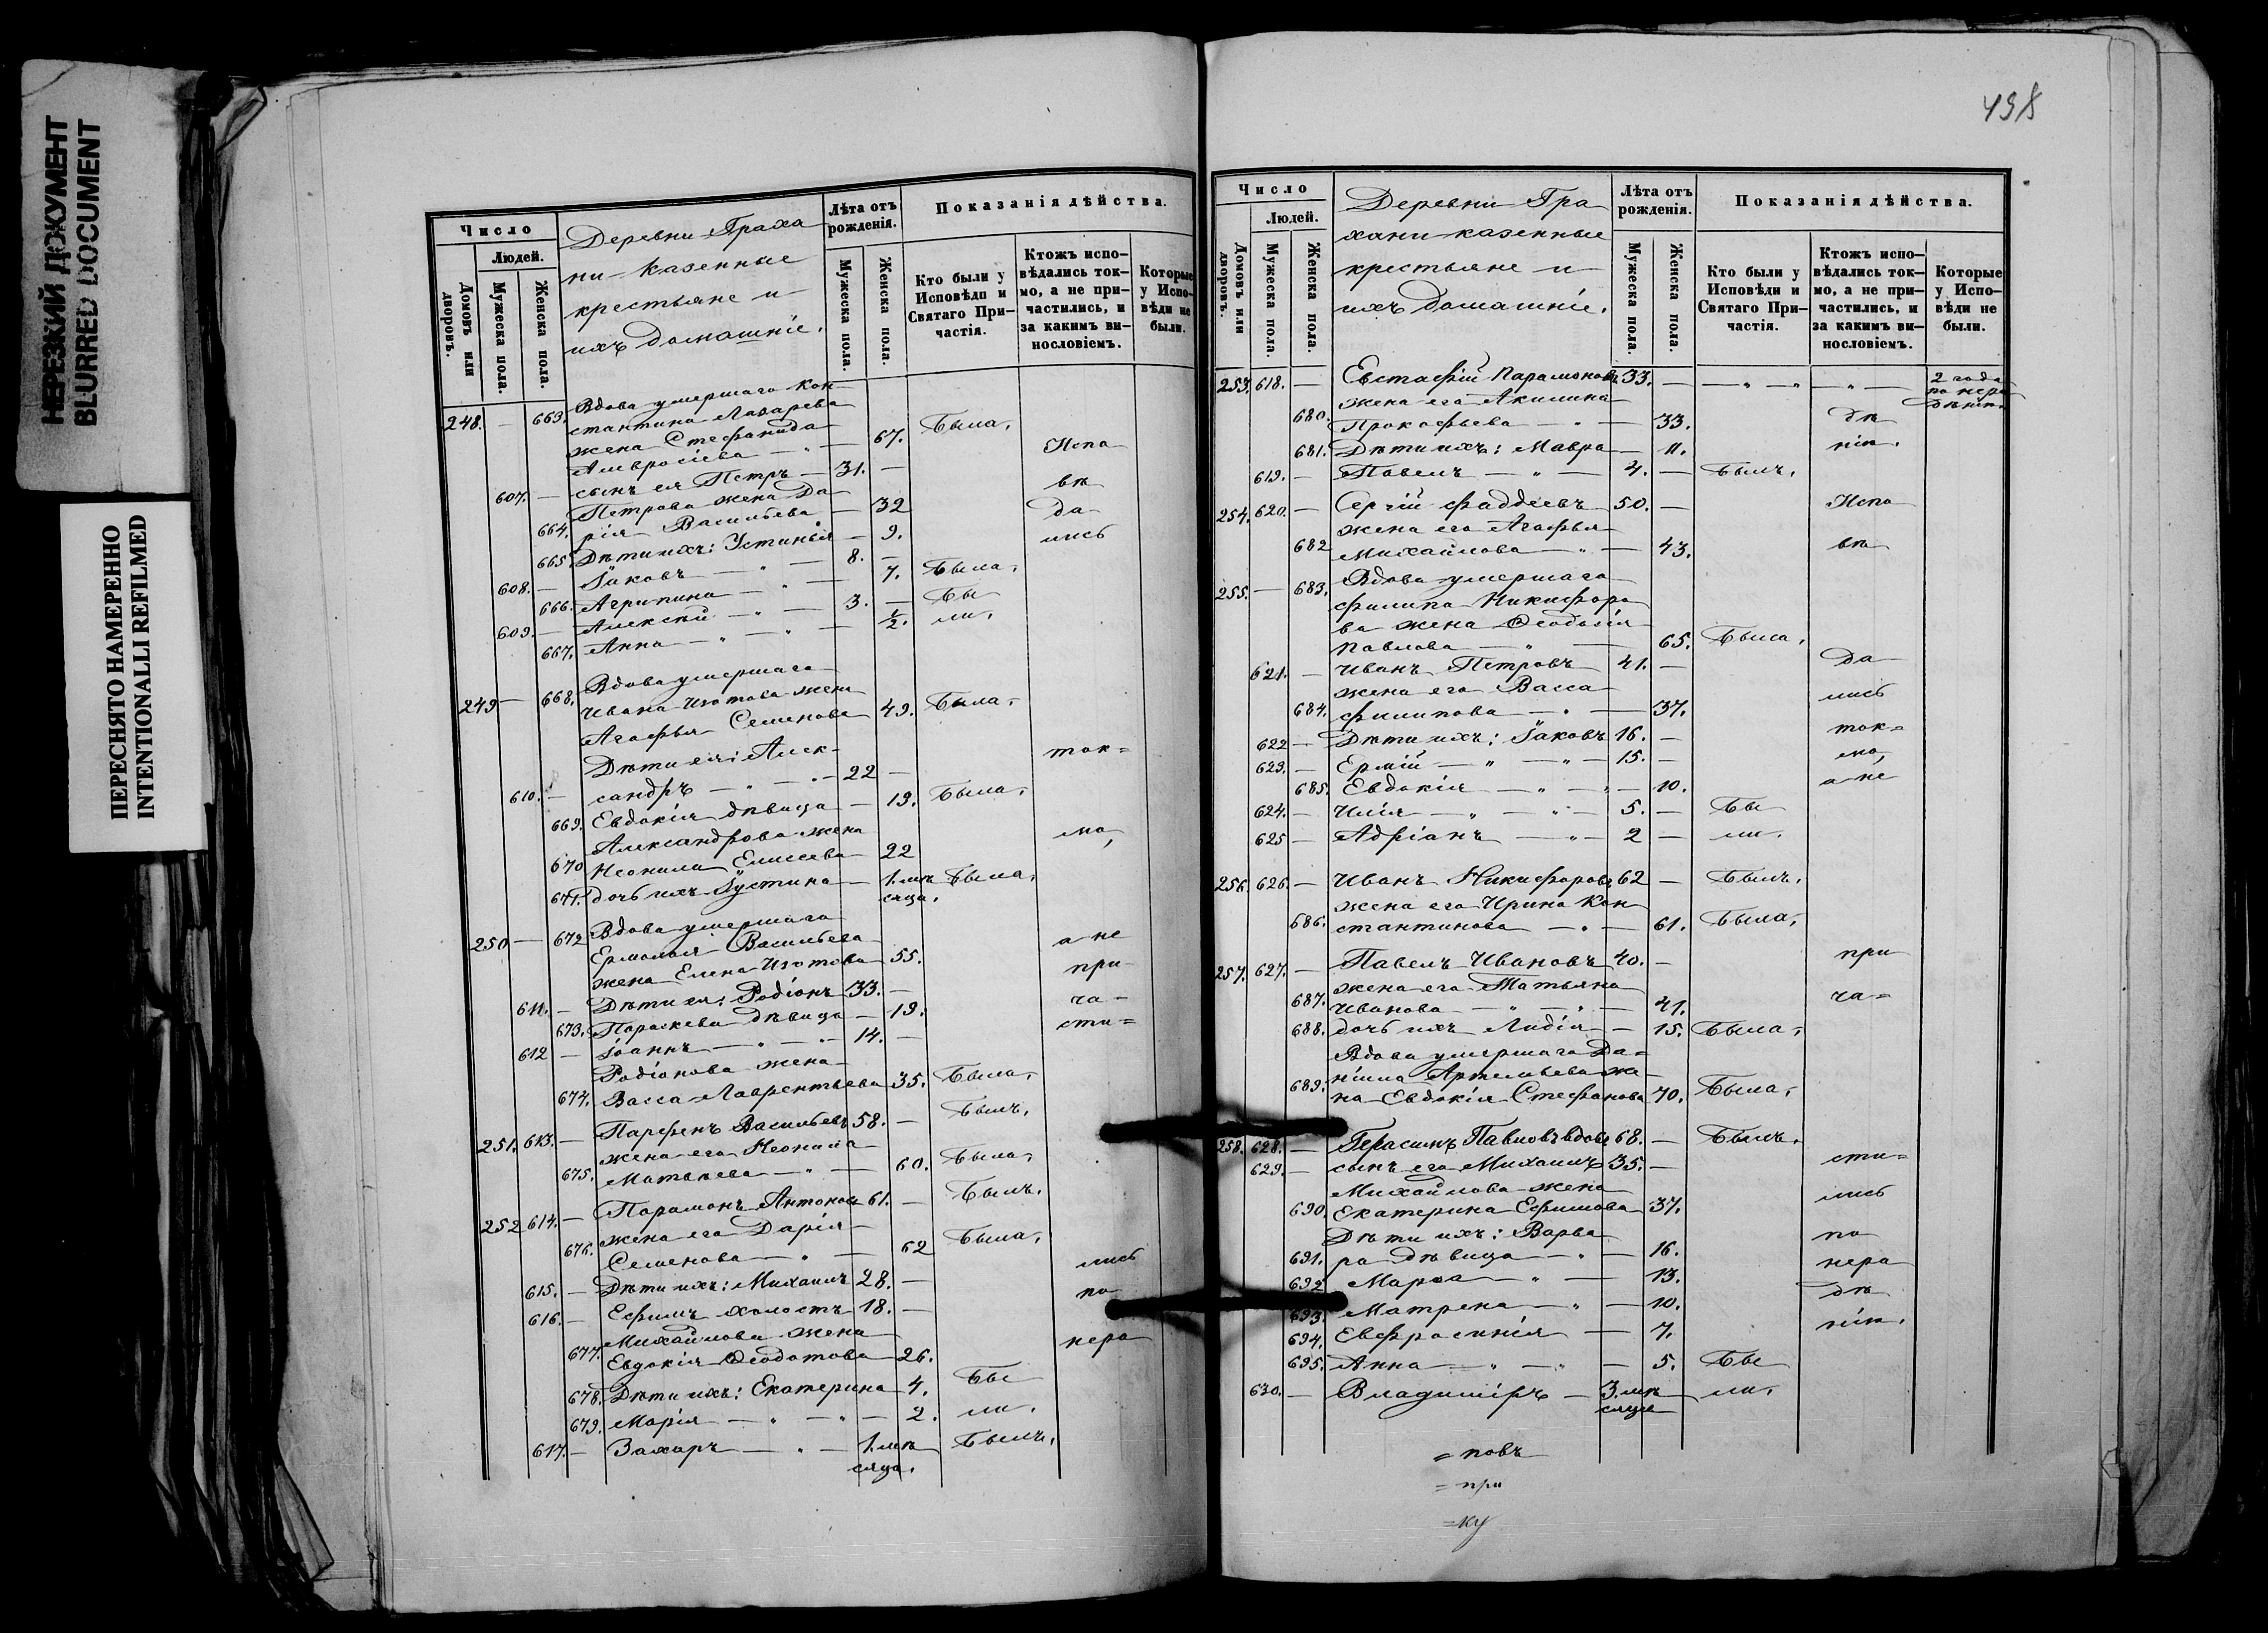 НЕРЕЗКИЙ ДОКУМЕНТ
BLURRED DOCUMENT
ПЕРЕСНЯТО НАМЕРЕННО
INTENTIONALLI REFILMED
Число
Людей.
Домовъ или дворовъ.
Мужеска пола.
Женска пола.
Деревни Граха
ни казенные
крестьяне и
ихъ домашніе.
Лѣта отъ рожденія.
Мужеска пола.
Женска пола.
Показанія дѣйства.
Кто были у Исповѣди и Святаго Причастія.
Ктожъ исповѣдались токмо, а не причастились, и за какимъ винословіемъ.
Которые у Исповѣди не были.
248. — 663. Вдова умершаго Кон
стантина Лазарева
жена Стефанида
Амвросіева — 67. Была. Испо
607. — сынъ ея Петръ — 31. —
Петрова жена Да вѣ
664. рія Васильева — 32 да
665. Дѣти ихъ: Устинья — 9. лись
608. — Іаковъ — " — 8. —
666. Агрипина — " — 7. Была.
609. — Алексѣй — " — 3. — Бы
667. Анна — " — " — ½. ли.
249 — 668. Вдова умершаго
Ивана Изотова жена
Агафья Семенова 49. Была.
Дѣти ея: Алек- ток=
610. — сандръ — " — " — 22 —
669. Евдокія дѣвица — 19. Была.
Александрова жена
670 Неонила Елисеева 22 мо,
671. дочь ихъ Іустина — 1. мѣ
сяца. Была.
250 — 672 Вдова умершаго
Ермолая Васильева а не
жена Елена Изотова 55. при
611. — Дѣти ея: Родіонъ 33. —
673. Параскева дѣвица — 19. ча=
612 — Іоаннъ — " — " — 14. — сти=
Родіонова жена
674. Васса Лаврентьева 35. Была.
251. 613. — Парфенъ Васильевъ 58. — Былъ.
жена его Неонила
675. Матвѣева — " — 60. Была.
252 614. — Парамонъ Антоновъ 61. — Былъ.
жена его Дарія
676. Семенова — " — 62 Была.
615. — Дѣти ихъ: Михаилъ 28. — лись
616. — Ефимъ холостъ 18. — по
Михайлова жена
677. Евдокія Ѳеодотова 26. нера
678. Дѣти ихъ: Екатерина 4. Бы
679. Марія — " — " — 2. ли.
617. — Захаръ — " — 1. мѣ
сяца. Былъ.
498
Число
Людей.
Домовъ или дворовъ.
Мужеска пола.
Женска пола.
Деревни Гра
хани казенные
крестьяне и
ихъ домашніе.
Лѣта отъ рожденія.
Мужеска пола.
Женска пола.
Показанія дѣйства.
Кто были у Исповѣди и Святаго Причастія.
Ктожъ исповѣдались токмо, а не причастились, и за какимъ винословіемъ.
Которые у Исповѣди не были.
253. 618. — Евстафій Парамоновъ 33. — — " — " — " — 2 года
по нера
дѣнію
жена его Акилина
680. Прокофьева — " — 33. дѣ
681. Дѣти ихъ: Мавра — 11. нію.
619. — Павелъ — " — 4. — Былъ.
254. 620. — Сергій Фаддѣевъ 50. — Испо
жена его Агафья
682 Михайлова — " — 43. вѣ
255. — 683. Вдова умершаго
Филипа Никифоро
ва жена Ѳеодосія
Павлова — " — 65. Была.
621. — Иванъ Петровъ 41. — да
жена его Васса лись
684. Филипова — " — 37.
622 — Дѣти ихъ: Іаковъ 16. — ток=
623. — Ермій — " — " — 15. — мо,
685. Евдокія — " — " — 10. а не
624. — Илія — " — " — 5. — Бы
625 — Адріанъ — " — 2 — ли.
256. 626 — Иванъ Никифоровъ 62 — Былъ.
жена его Ирина Кон
686. стантинова — " — 61. Была.
257. 627. — Павелъ Ивановъ 40. — при
жена его Татьяна
687. Иванова — " — " — 41. ча=
688. дочь ихъ Лидія — 15. Была.
Вдова умершаго Да=
689. ніила Артемьева же
на Евдокія Стефанова 70. Была.
258. 628. — Герасимъ Павловъ вдовъ 68. — Былъ.
629. — сынъ его Михаилъ 35. — сти=
Михайлова жена
690. Екатерина Ефимова 37. лись
Дѣти ихъ: Варва по
691. ра дѣвица — " — 16. нера
692 Марѳа — " — 13.
693. Матрена — " — 10. дѣ
694. Евфросинія — 7. нію.
695. Анна — " — " — 5. Бы
630. — Владиміръ — 3. мѣ
сяца ли.
= повъ
= при
= ку